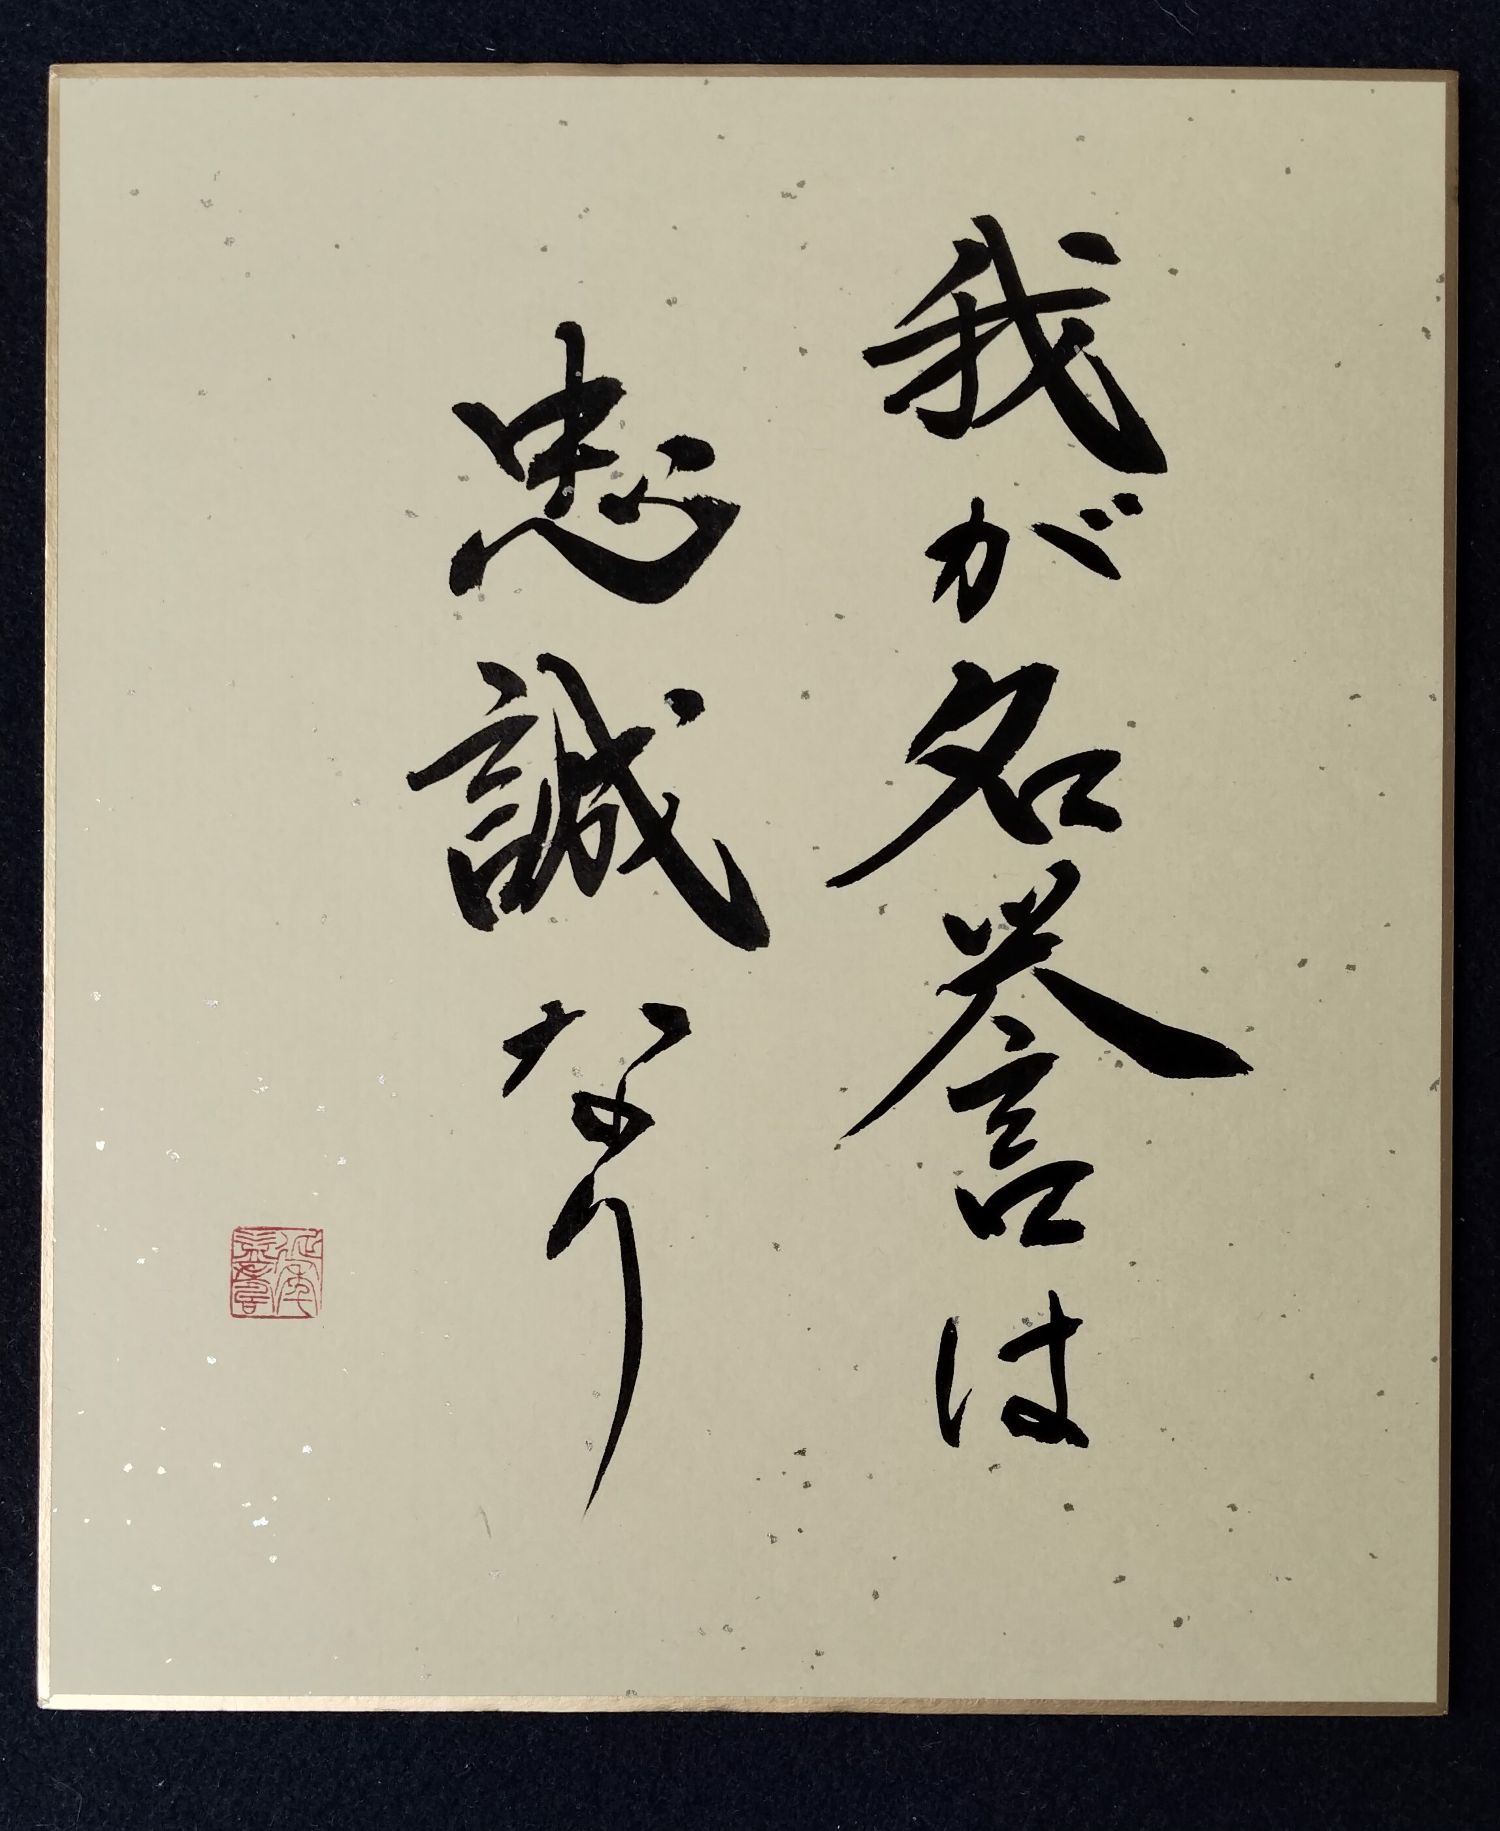 我が名誉は
忠誠なり